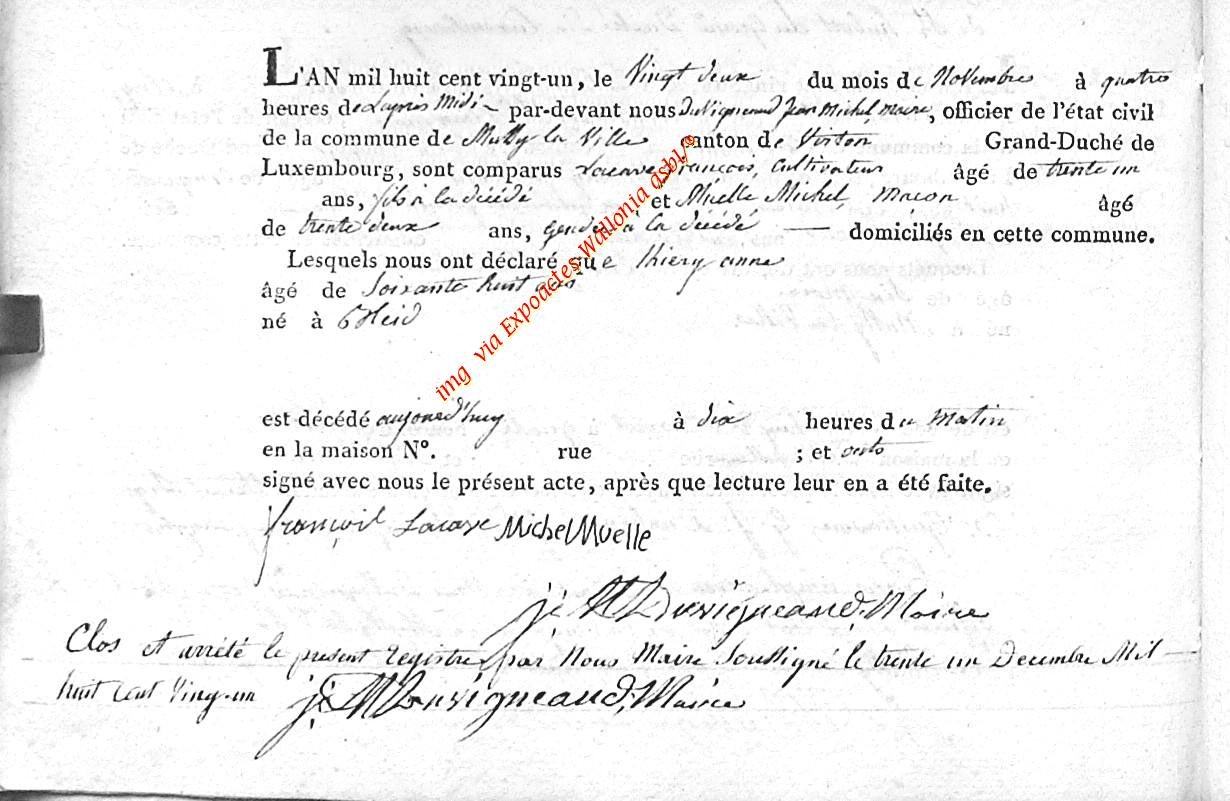 L'AN mil huit cent vingt-un, le Vingt deux du mois de Novembre à quatre
heures de Lapres Midi par-devant nous Duvigneaud Jean Michel, maire, officier de l'état civil
de la commune de Mussy la Ville canton de Virton Grand-Duché de
Luxembourg, sont comparus Lacave François, Cultivateur âgé de trente un
ans, fils à la décédé et Muelle Michel, Macon âgé
de trente deux ans, gendre à la décédé domiciliés en cette commune.
Lesquels nous ont déclaré que thiery anne
âgé de Soixante huit ans
né à
est décédé aujourd'huy à dix heures du Matin
en la maison N°. rue ; et
signé avec nous le présent acte, après que lecture leur en a été faite.
françois Lacave Michel Muelle
j: M Duvigneaud, Maire
Clos et arrété le present Registre par Nous Maire Soussigné le trente un Decembre Mil
huit Cent Ving-un j: M Duvigneaud, Maire
img via Expoactes Wallonia asbl/®